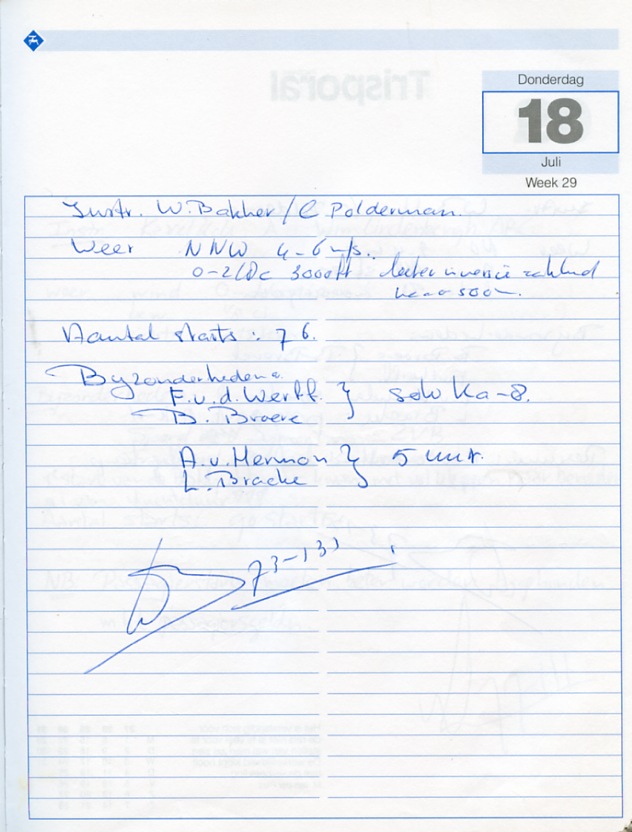 Donderdag
18
Juli
Week 29
Instr. W. Bakker / C Polderman.
Weer NNW 4-6 m/s.
0-2/8c 3000ft later inversie zakkend
naar 500m.
Aantal starts : 76.
Byzonderheden.
F.v.d. Werff. } solo Ka-8.
B. Broere
A.v. Hermon } 5 uur.
L. Bracke
73-133